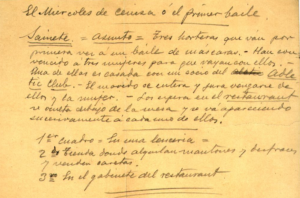 El Miércoles de ceniza ó el primer baile
Sainete = Asunto = Tres horteras que van por
primera vez á un baile de máscaras. - Han con
vencido á tres mujeres para que vayan con ellos. -
Una de ellas es casada con un socio del Athle
tic Club. - El marido se entera y para vengarse de
ellos y la mujer - Los espera en el restaurant
se oculta debajo de la mesa, y se va apareciendo
sucesivamente á cada uno de ellos.
1er cuadro - En una lencería =
2º Tienda donde alquilan mantones y disfraces
y venden caretas.
3º En el gabinete del restaurant